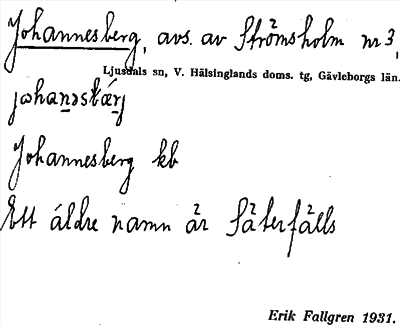 Johannesberg, avs. av Strömsholm nr 3,
Ljusdals sn, V. Hälsinglands doms. tg, Gävleborgs län.
Johannesberg kb
Ett äldre namn är Säterfälls
Erik Fallgren 1931.